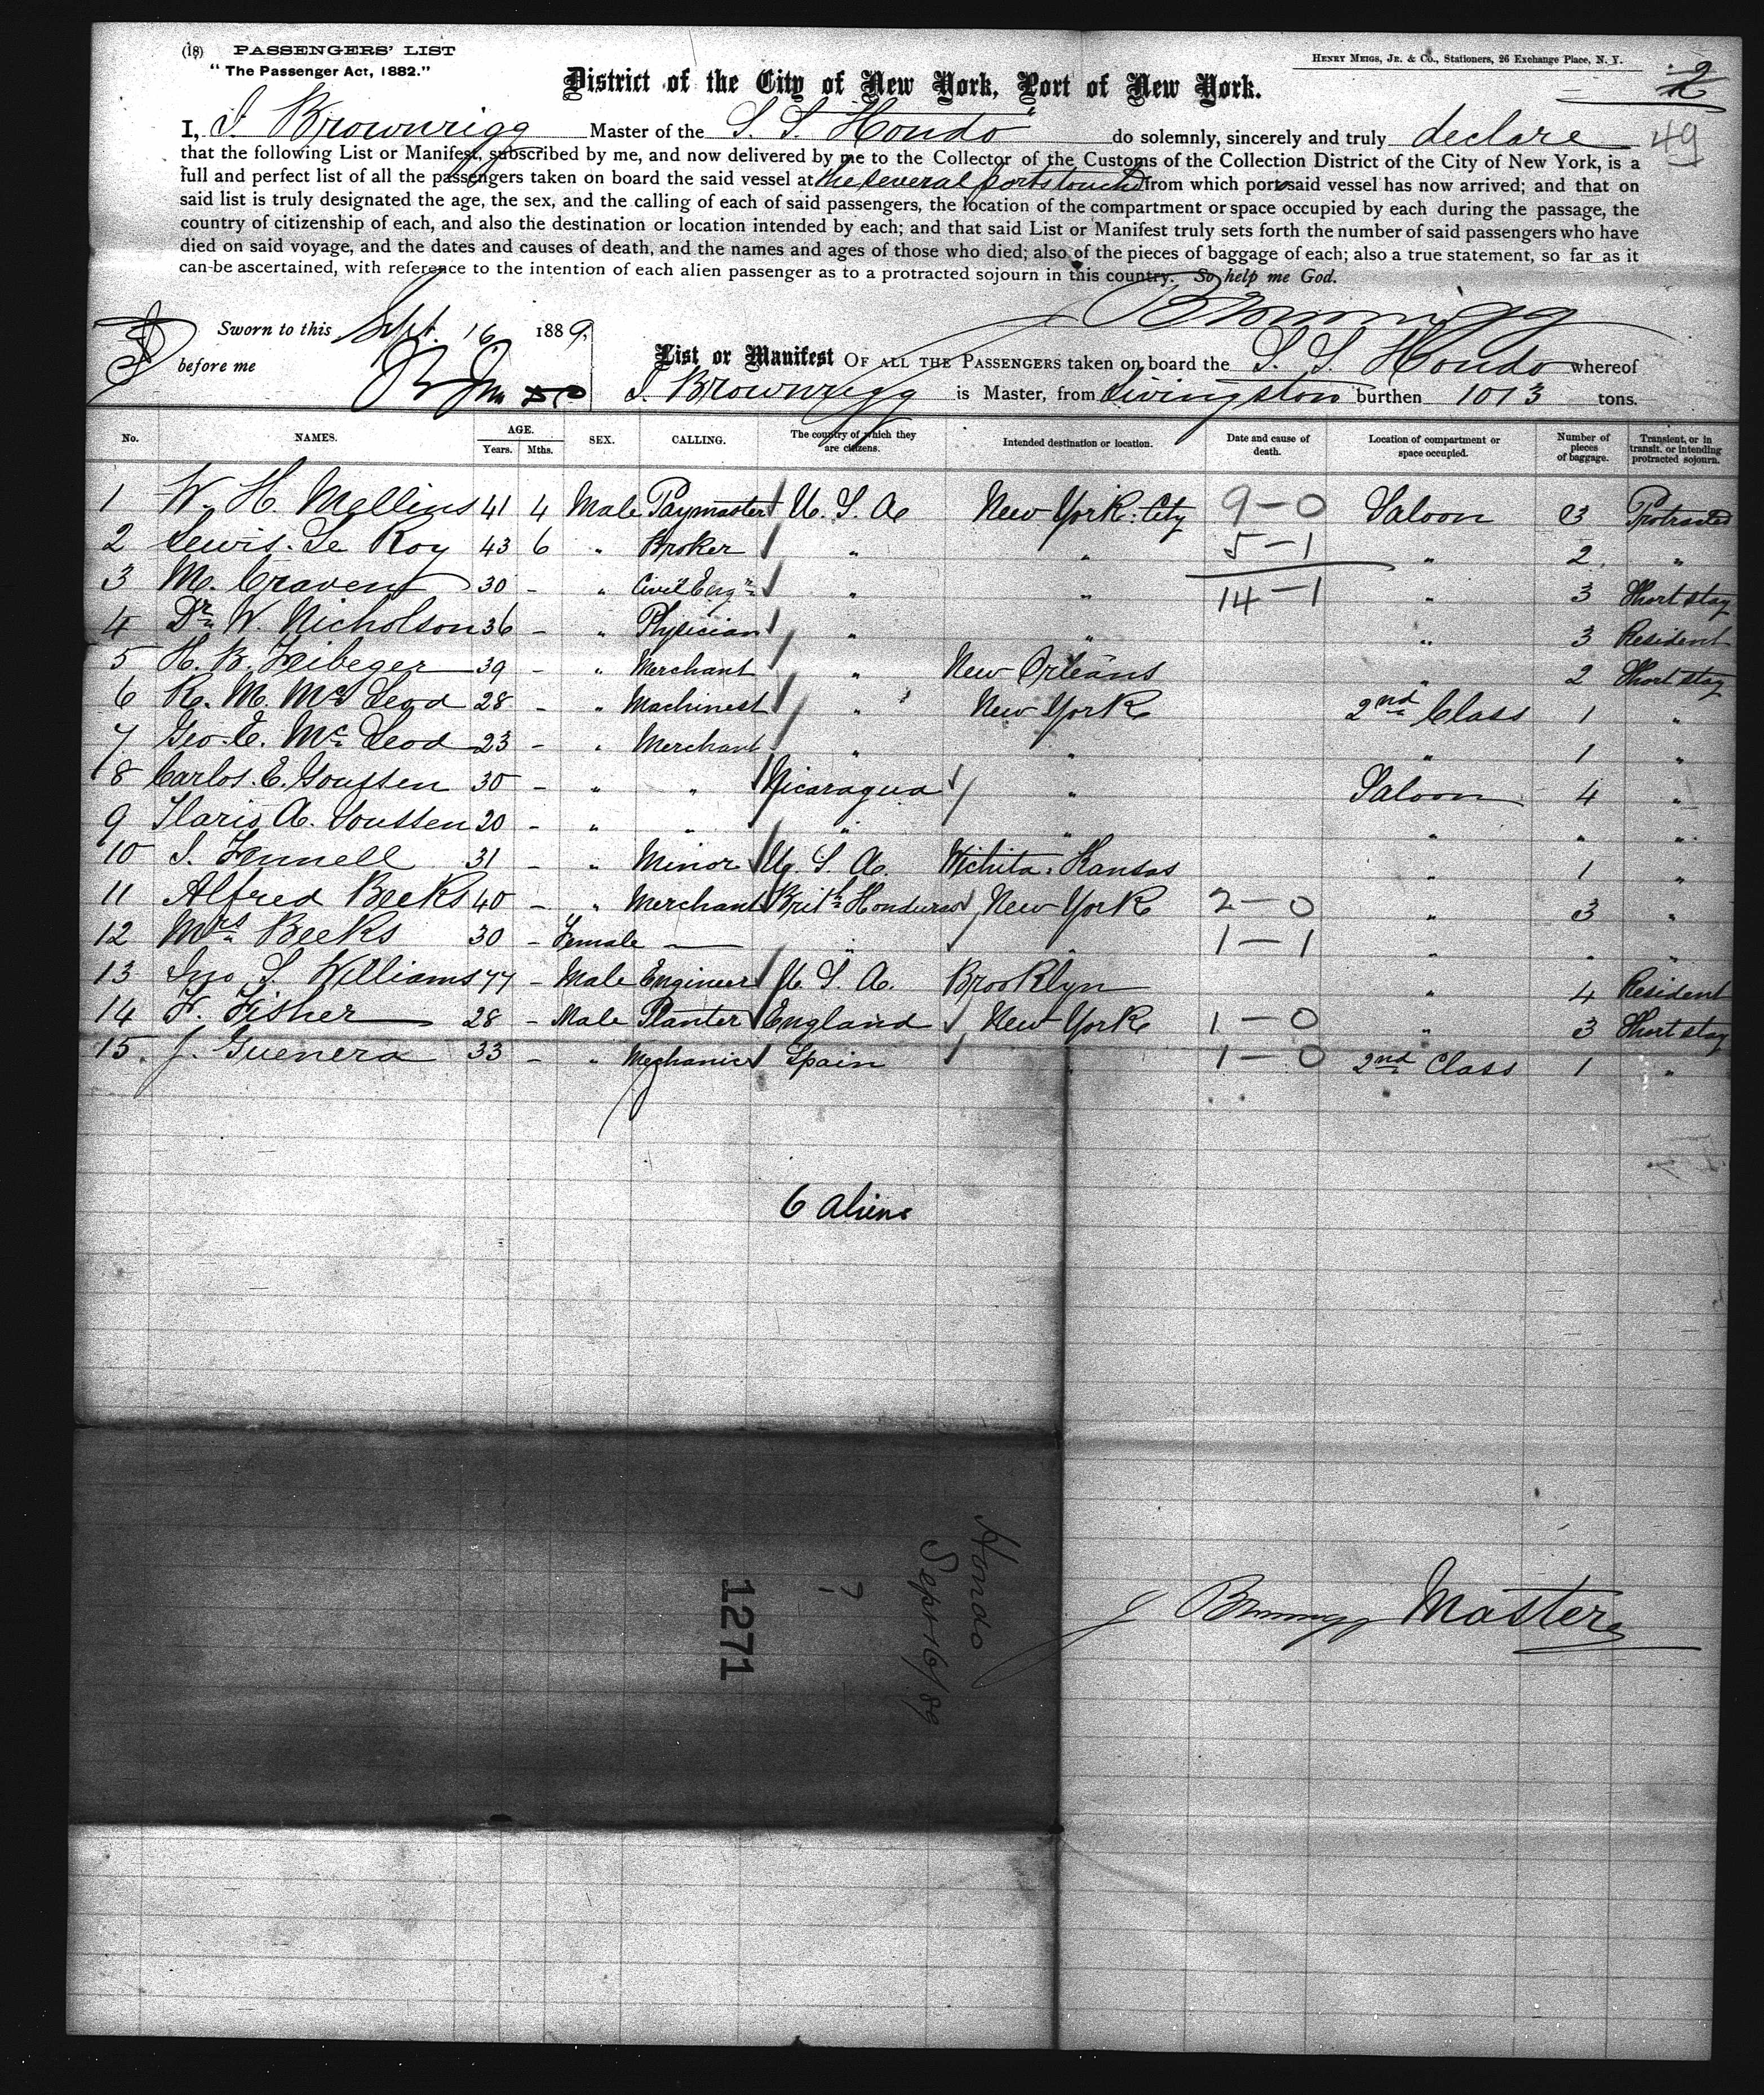 (18) PASSENGERS' LIST
"The Passenger Act, 1882."
HENRY MEIGS, JR. & CO., Stationers, 26 Exchange Place, N. Y.
2
District of the City of New York, Port of New York.
49
I, J. Brownrigg Master of the S. S. Hondo do solemnly, sincerely and truly declare
that the following List or Manifest, subscribed by me, and now delivered by me to the Collector of the Customs of the Collection District of the City of New York, is a
full and perfect list of all the passengers taken on board the said vessel at the several ports touched from which ports said vessel has now arrived; and that on
said list is truly designated the age, the sex, and the calling of each of said passengers, the location of the compartment or space occupied by each during the passage, the
country of citizenship of each, and also the destination or location intended by each; and that said List or Manifest truly sets forth the number of said passengers who have
died on said voyage, and the dates and causes of death, and the names and ages of those who died; also of the pieces of baggage of each; also a true statement, so far as it
can be ascertained, with reference to the intention of each alien passenger as to a protracted sojourn in this country. So help me God.
J Brownrigg
Sworn to this Sept. 16 1889,
before me
List or Manifest OF ALL THE PASSENGERS taken on board the S. S. Hondo whereof
J. Brownrigg is Master, from Livingston burthen 1013 tons.
No. NAMES. AGE. Years. Mths. SEX. CALLING. The country of which they are citizens. Intended destination or location. Date and cause of death. Location of compartment or space occupied. Number of pieces of baggage. Transient, or in transit, or intending protracted sojourn.
1 W. H. Mellins 41 4 Male Paymaster U. S. A. New York City 9-0 Saloon 3 Protracted
2 Lewis Le Roy 43 6 " Broker " " 5-1 " 2 "
3 M. Craven 30 - " Civil Engr " " 14-1 " 3 Short stay
4 Dr. W. Nicholson 36 - " Physician " " " 3 Resident
5 H. B. 39 - " Merchant " New Orleans " 2 Short stay
6 R. M. Mc Leod 28 - " Machinest " New York 2nd Class 1 "
7 Geo. E. Mc Leod 23 - " Merchant " " " 1 "
8 Carlos E. 30 - " " Nicaragua " Saloon 4 "
9 A. 20 - " " " " " " "
10 31 - " Minor U. S. A. Wichita, Kansas " 1 "
11 Alfred Beeks 40 - " Merchant Brith Honduras New York 2-0 " 3 "
12 Mrs. Beeks 30 - Female — " " 1-1 " " "
13 Jno. S. Williams 47 - Male Engineer U. S. A. Brooklyn " 4 Resident
14 F. Fisher 28 - Male Planter England New York 1-0 " 3 Short stay
15. J. Guenera 33 - " Mechanic Spain " 1-0 2nd Class 1 "
6 aliens
Hondo
Sept 16/89
7
1
1271
J Brownrigg Master